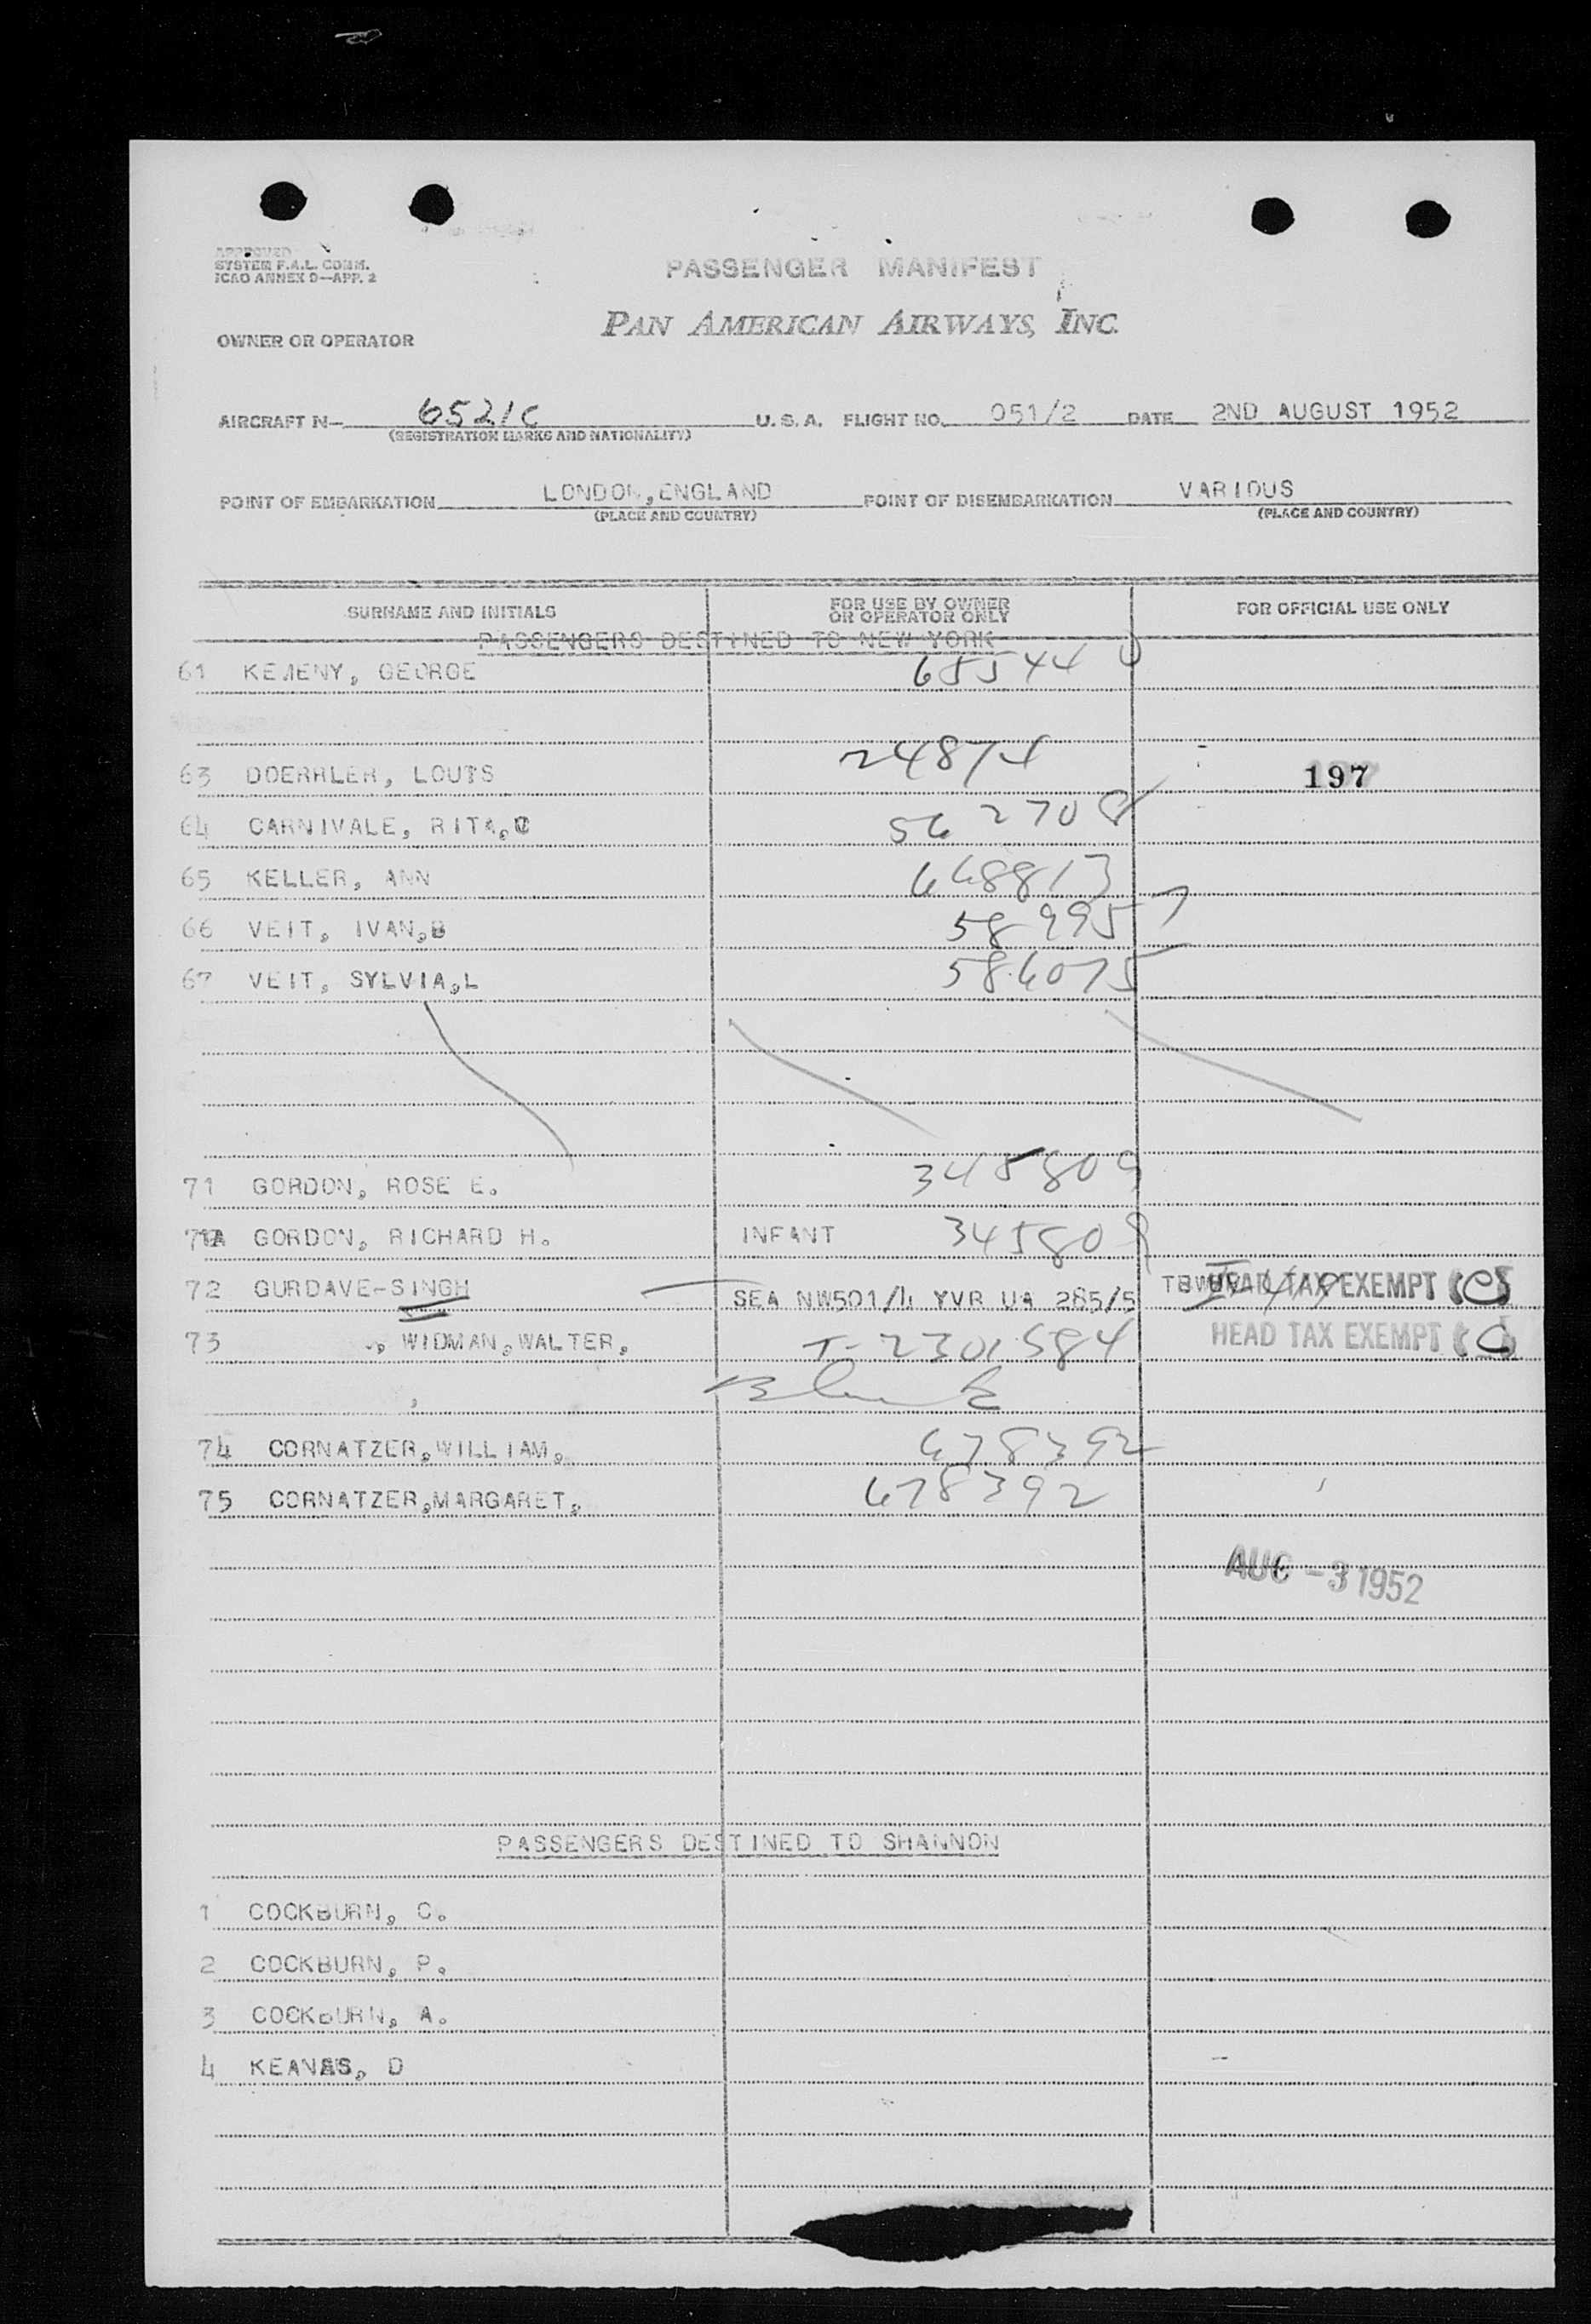 APPROVED
SYSTEM F.A.L. COMM.
ICAO ANNEX 9—APP. 2
PASSENGER MANIFEST
PAN AMERICAN AIRWAYS, INC.
OWNER OR OPERATOR
AIRCRAFT N— 6521C U.S.A. FLIGHT NO. 051/2 DATE 2ND AUGUST 1952
(REGISTRATION MARKS AND NATIONALITY)
POINT OF EMBARKATION LONDON, ENGLAND POINT OF DISEMBARKATION VARIOUS
(PLACE AND COUNTRY) (PLACE AND COUNTRY)
SURNAME AND INITIALS FOR USE BY OWNER OR OPERATOR ONLY FOR OFFICIAL USE ONLY
PASSENGERS DESTINED TO NEW YORK
61 KEMENY, GEORGE 685444
63 DOERRLER, LOUTS 24874 197
64 CARNIVALE, RITA,C 562708
65 KELLER, ANN 668813
66 VEIT, IVAN,B 589957
67 VEIT, SYLVIA,L 586075
71 GORDON, ROSE E. 345809
71A GORDON, RICHARD H. INFANT 345809
72 GURDAVE-SINGH SEA NW501/4 YVR UA 285/5 HEAD TAX EXEMPT
73 WIDMAN,WALTER, T-2301584 HEAD TAX EXEMPT
Blank
74 CORNATZER,WILLIAM, 678392
75 CORNATZER,MARGARET, 678392
AUG -3 1952
PASSENGERS DESTINED TO SHANNON
1 COCKBURN, C.
2 COCKBURN, P.
3 COCKBURN, A.
4 KEANES, D